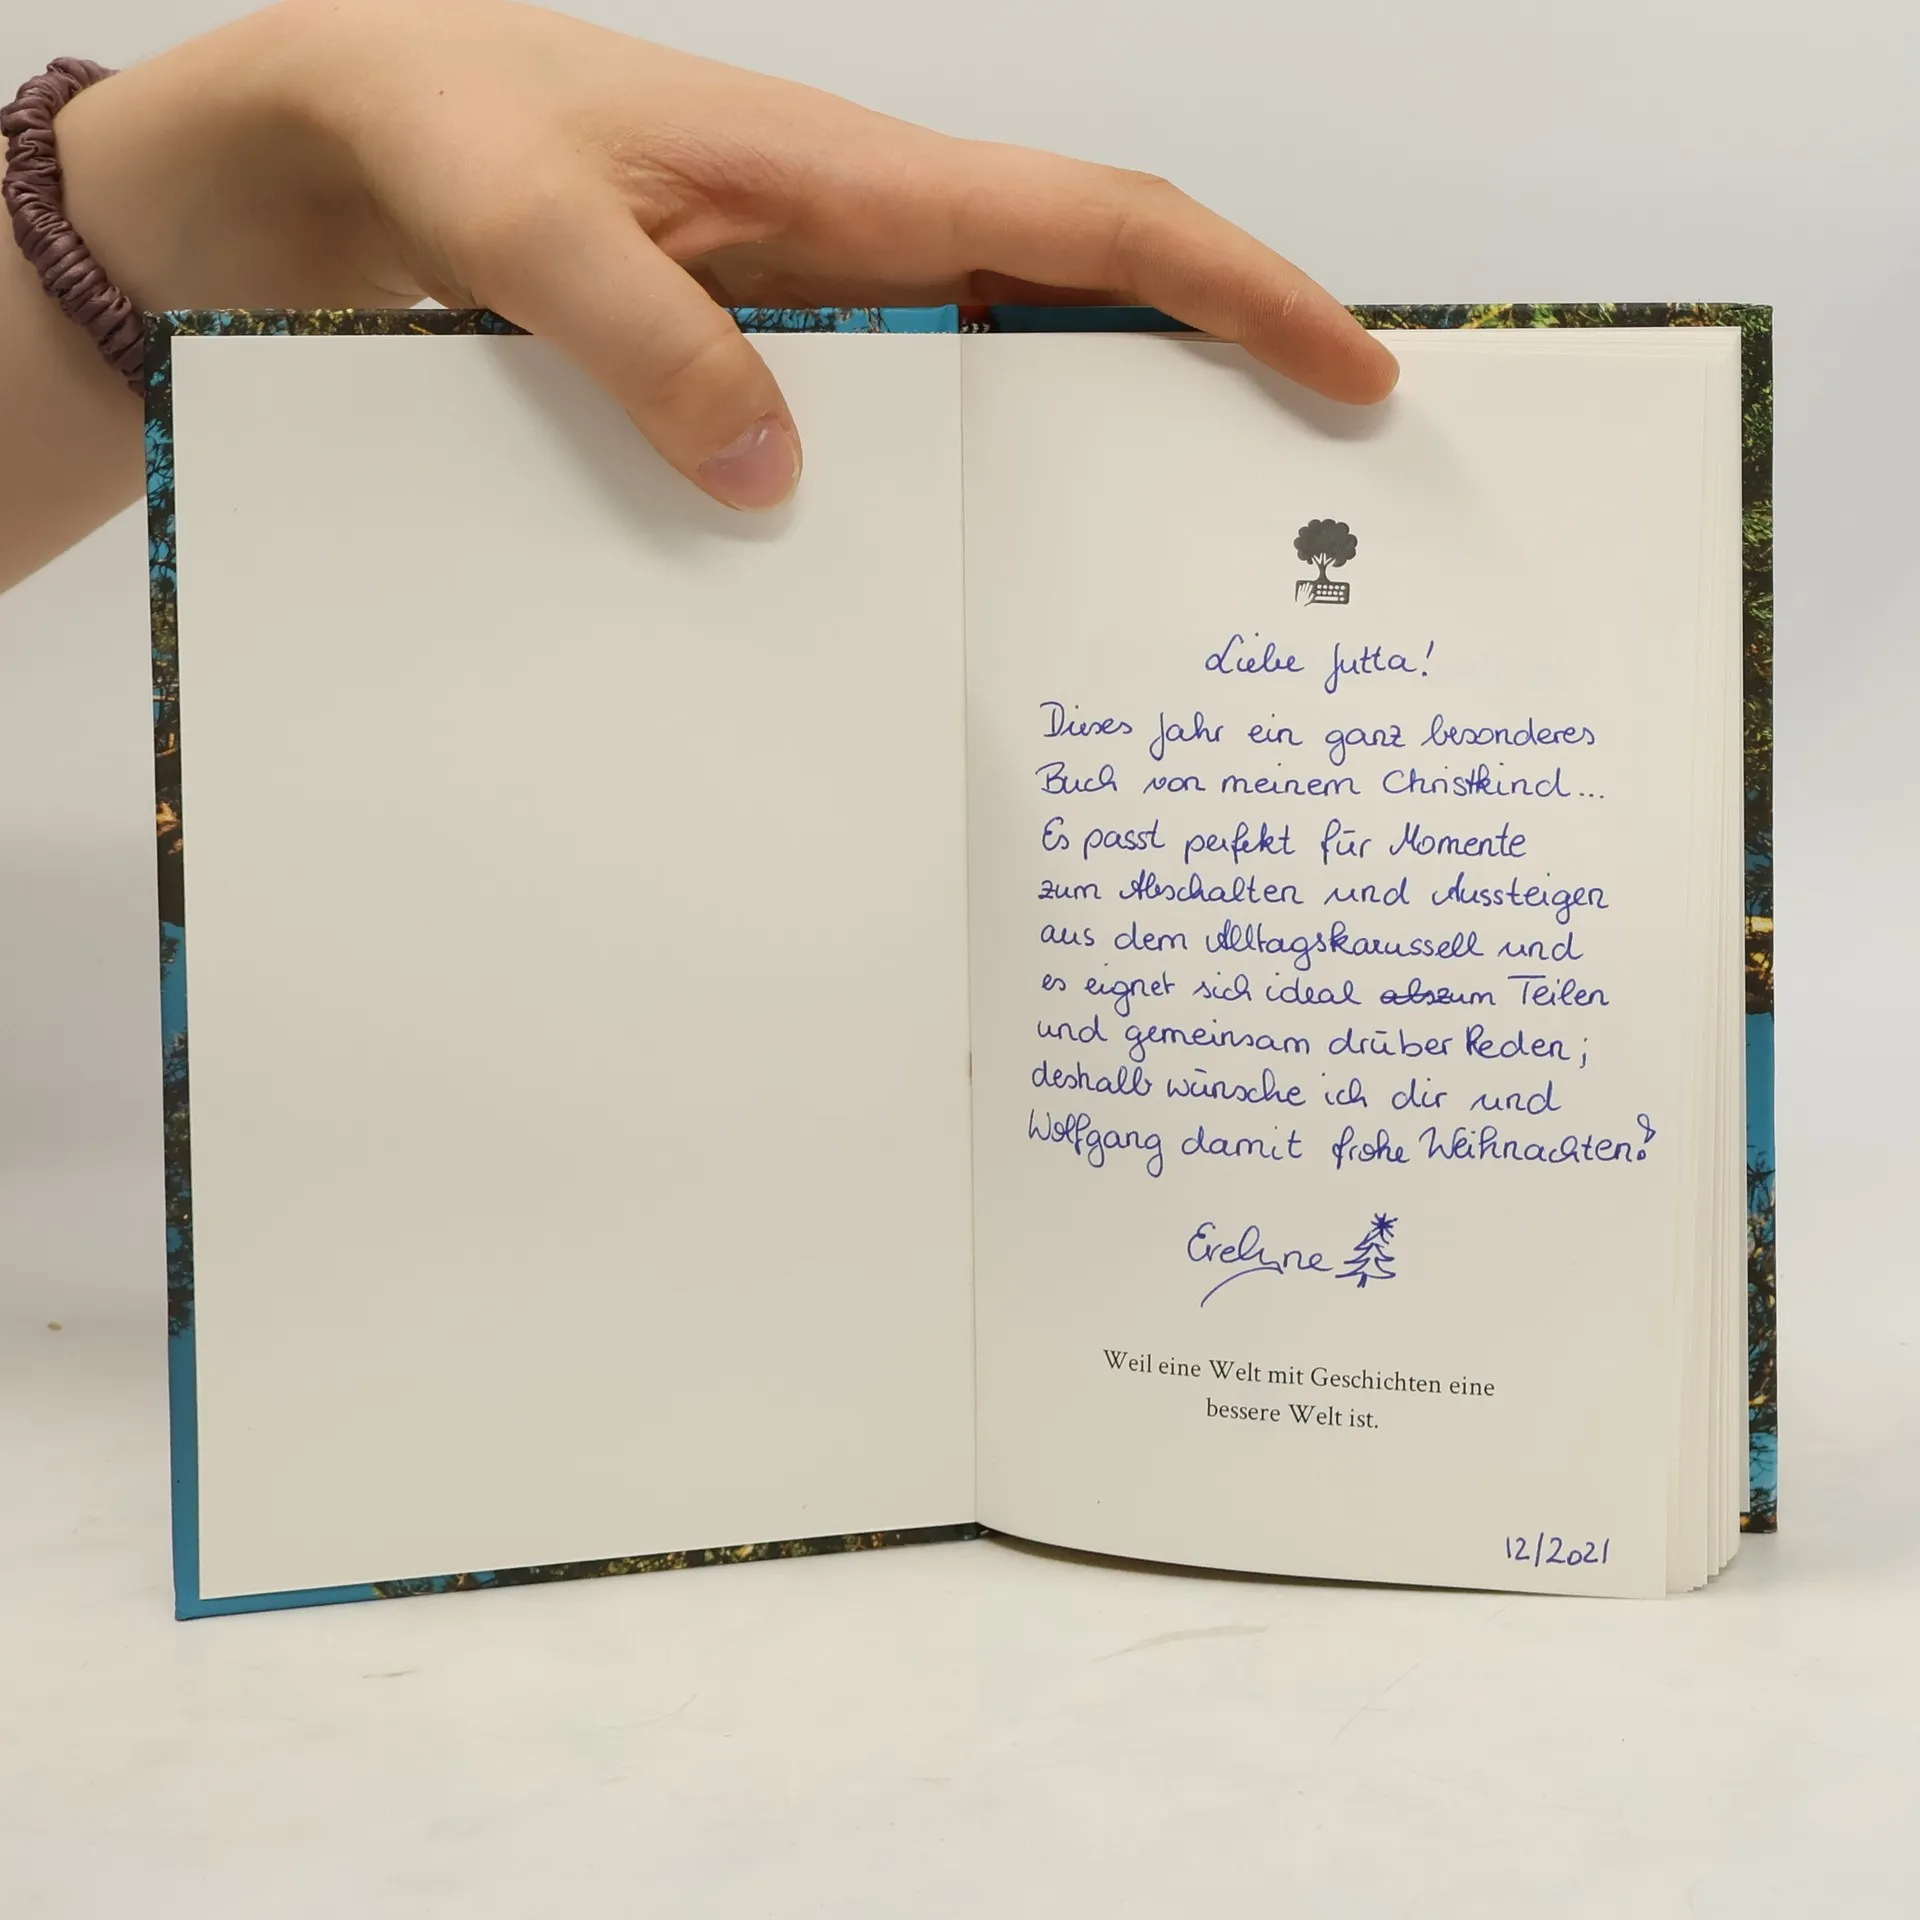 Liebe Jutta!
Dieses Jahr ein ganz besonderes
Buch von meinem Christkind...
Es passt perfekt für Momente
zum Abschalten und Aussteigen
aus dem Alltagskarussell und
es eignet sich ideal als zum Teilen
und gemeinsam drüber Reden;
deshalb wünsche ich dir und
Wolfgang damit frohe Weihnachten!
Evelyne
Weil eine Welt mit Geschichten eine
bessere Welt ist.
12/2021